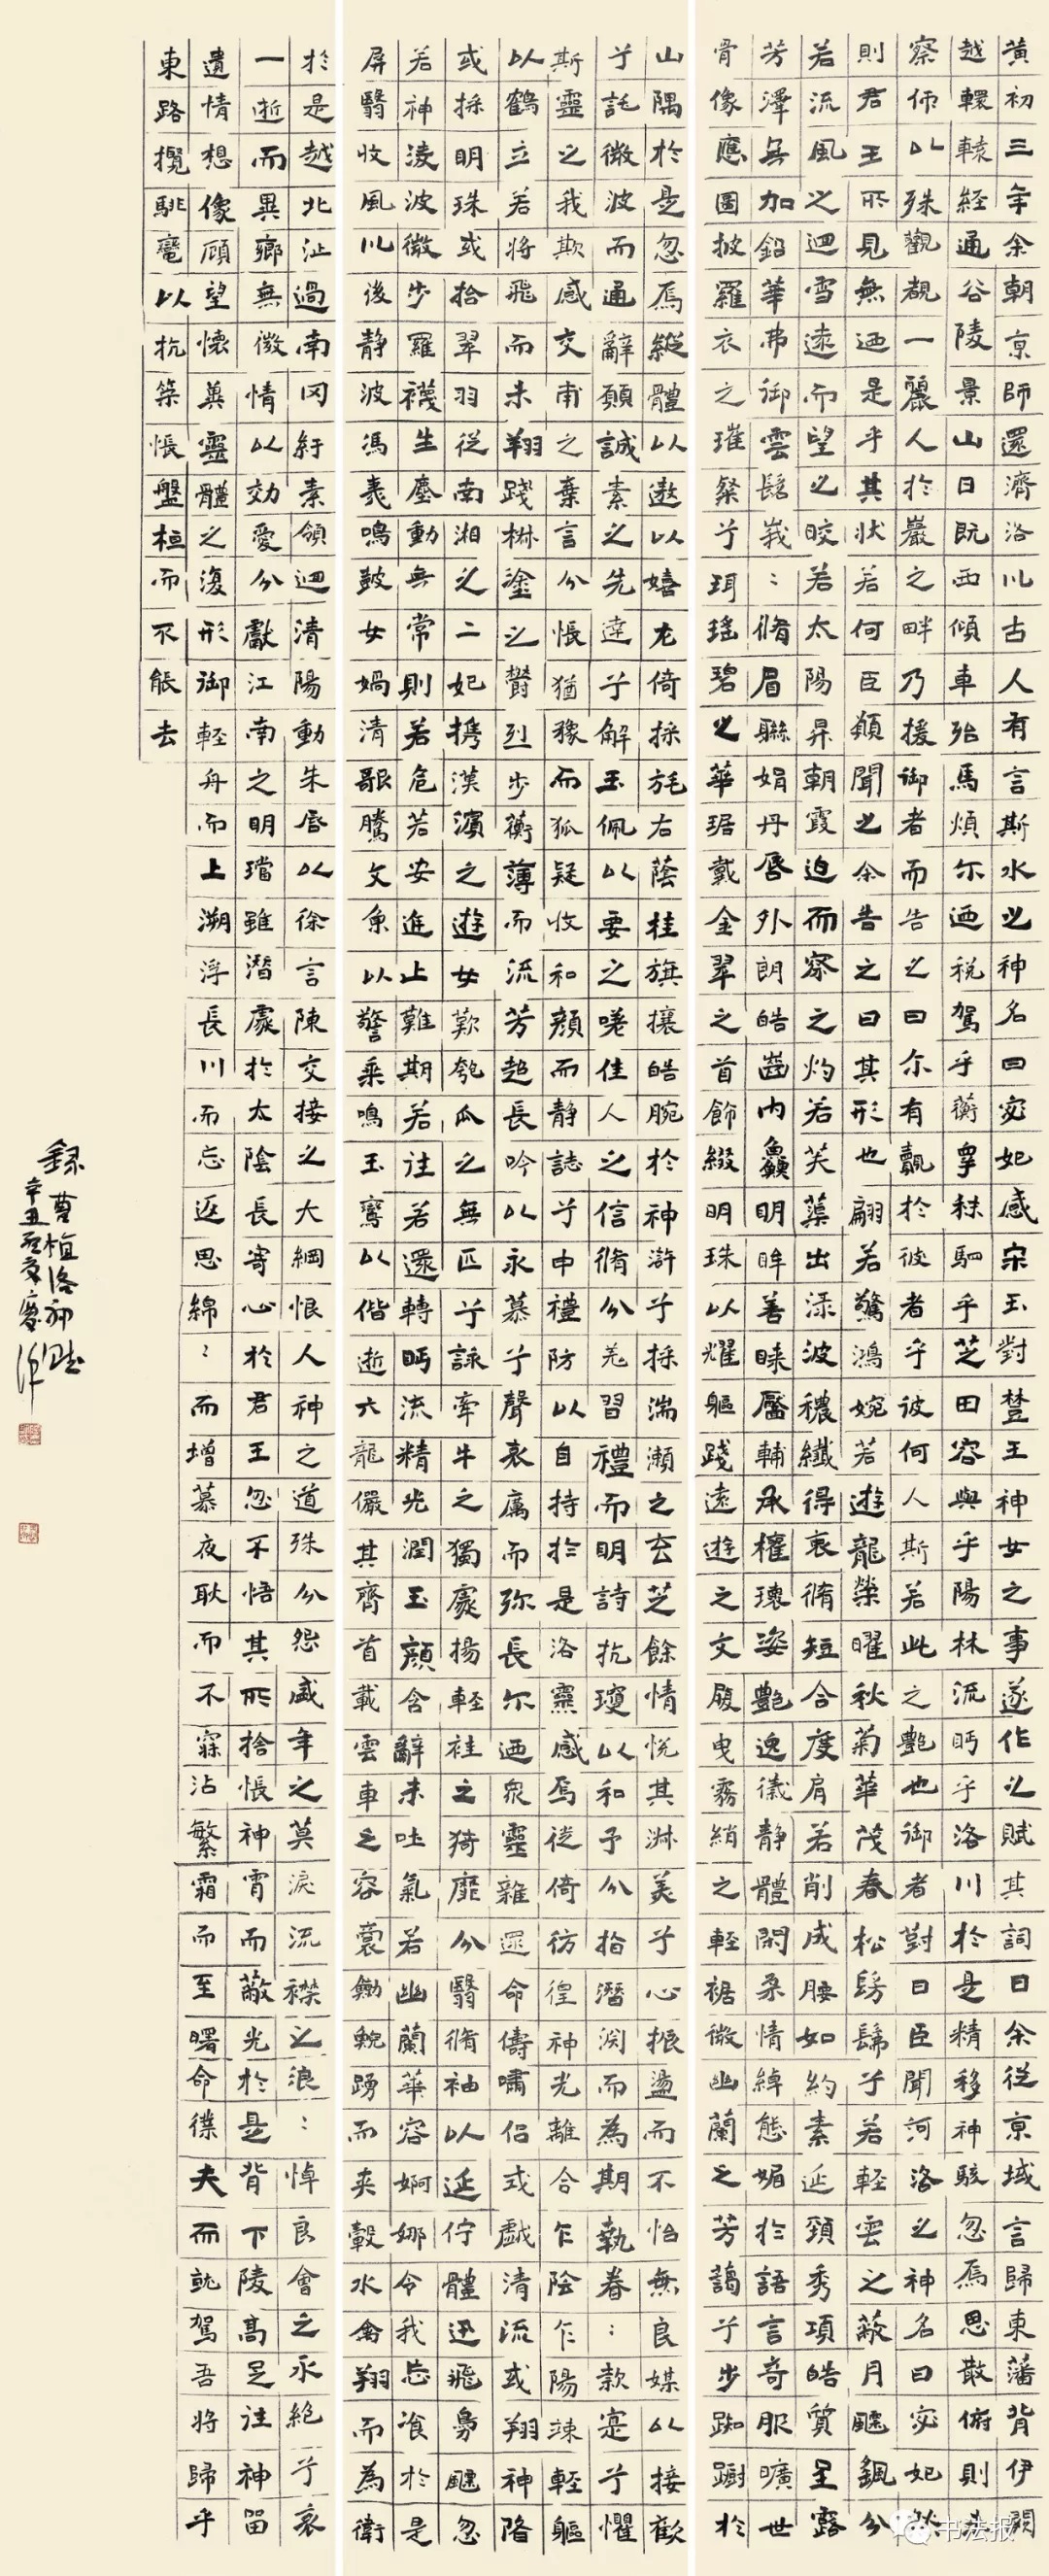 黄初三年余朝京師還濟洛川古人有言斯水之神名曰宓妃感宋玉對楚王神女之事遂作此賦其詞曰余從京域言歸東藩背伊闕
越轘轅経通谷陵景山日既西傾車殆馬煩尓迺税駕乎蘅皋秣駟乎芝田容與乎陽林流眄乎洛川於是精移神駭忽焉思散俯則未
察仰以殊觀覩一麗人於巖之畔乃援御者而告之曰尓有覿於彼者乎彼何人斯若此之艷也御者對曰臣聞河洛之神名曰宓妃然
則君王所見無迺是乎其狀若何臣願聞之余告之曰其形也翩若驚鴻婉若遊龍榮曜秋菊華茂春松髣髴兮若輕雲之蔽月飄颻兮
若流風之迴雪遠而望之皎若太陽昇朝霞迫而察之灼若芙蕖出渌波穠纖得衷脩短合度肩若削成腰如約素延頸秀項皓質呈露
芳澤無加鉛華弗御雲髻峩：脩眉聯娟丹唇外朗皓齒内鱻明眸善睞靨輔承權瓌姿艷逸儀静體閑柔情綽態媚於語言奇服曠世
骨像應圖披羅衣之璀粲兮珥瑤碧之華琚戴金翠之首飾綴明珠以耀軀踐遠遊之文履曳霧綃之輕裾微幽蘭之芳藹兮步踟躕於
山隅於是忽焉縱體以遨以嬉左倚採旄右蔭桂旗攘皓腕於神滸兮採湍瀨之玄芝餘情悦其淋美兮心振盪而不怡無良媒以接歡
兮託微波而通辭願誠素之先達兮解玉佩以要之嗟佳人之信脩兮羌習禮而明詩抗瓊以和予兮指潛渕而為期執眷：款寔兮懼
斯靈之我欺感交甫之棄言兮悵猶豫而狐疑收和顏而静誌兮申禮防以自持於是洛靈感焉徙倚彷徨神光離合乍陰乍陽竦輕軀
以鶴立若將飛而未翔踐椒塗之鬱烈步蘅薄而流芳超長吟以永慕兮聲哀厲而弥長尓迺衆靈雜遝命儔嘯侣或戯清流或翔神渚
或採明珠或拾翠羽從南湘之二妃携漢濱之遊女歎匏瓜之無匹兮詠牽牛之獨處揚輕袿之猗靡兮翳脩袖以延佇體迅飛鳧飄忽
若神淩波微步羅襪生塵動無常則若危若安進止難期若往若還轉眄流精光潤玉顏含辭未吐氣若幽蘭華容婀娜令我忘飡於是
屏翳收風川後静波馮夷鳴鼓女媧清歌騰文魚以警乘鳴玉鸞以偕逝六龍儼其齊首載雲車之容裔鯨鯢踴而夾轂水禽翔而為衛
於是越北沚過南冈紆素領迴清陽動朱唇以徐言陳交接之大綱恨人神之道殊兮怨盛年之莫淚流襟之浪：悼良會之永絶兮哀
一逝而異鄉無微情以効愛兮獻江南之明璫雖潛處於太陰長寄心於君王忽不悟其所捨悵神宵而蔽光於是背下陵高足往神留
遺情想像顧望懷冀靈體之復形御輕舟而上溯浮長川而忘返思綿：而增慕夜耿而不寐沾繁霜而至曙命僕夫而就駕吾將歸乎
東路攬騑轡以抗策悵盤桓而不能去
録曹植洛神賦
辛丑
书法报